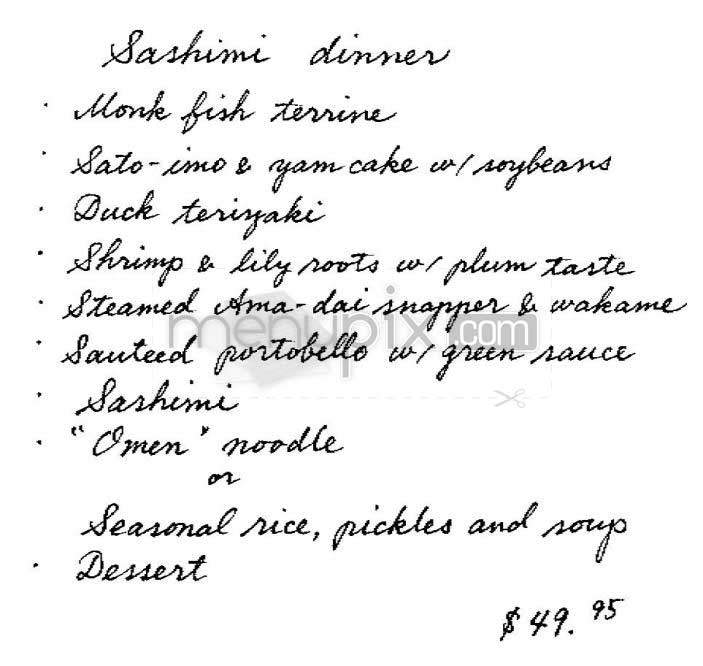 Sashimi dinner
· Monk fish terrine
· Sato-imo & yam cake w/ soybeans
· Duck teriyaki
· Shrimp & lily roots w/ plum taste
· Steamed Ama-dai snapper & wakame
menupix.com
· Sauteed portobello w/ green sauce
· Sashimi
· "Omen" noodle
or
Seasonal rice, pickles and soup
· Dessert
$49.95